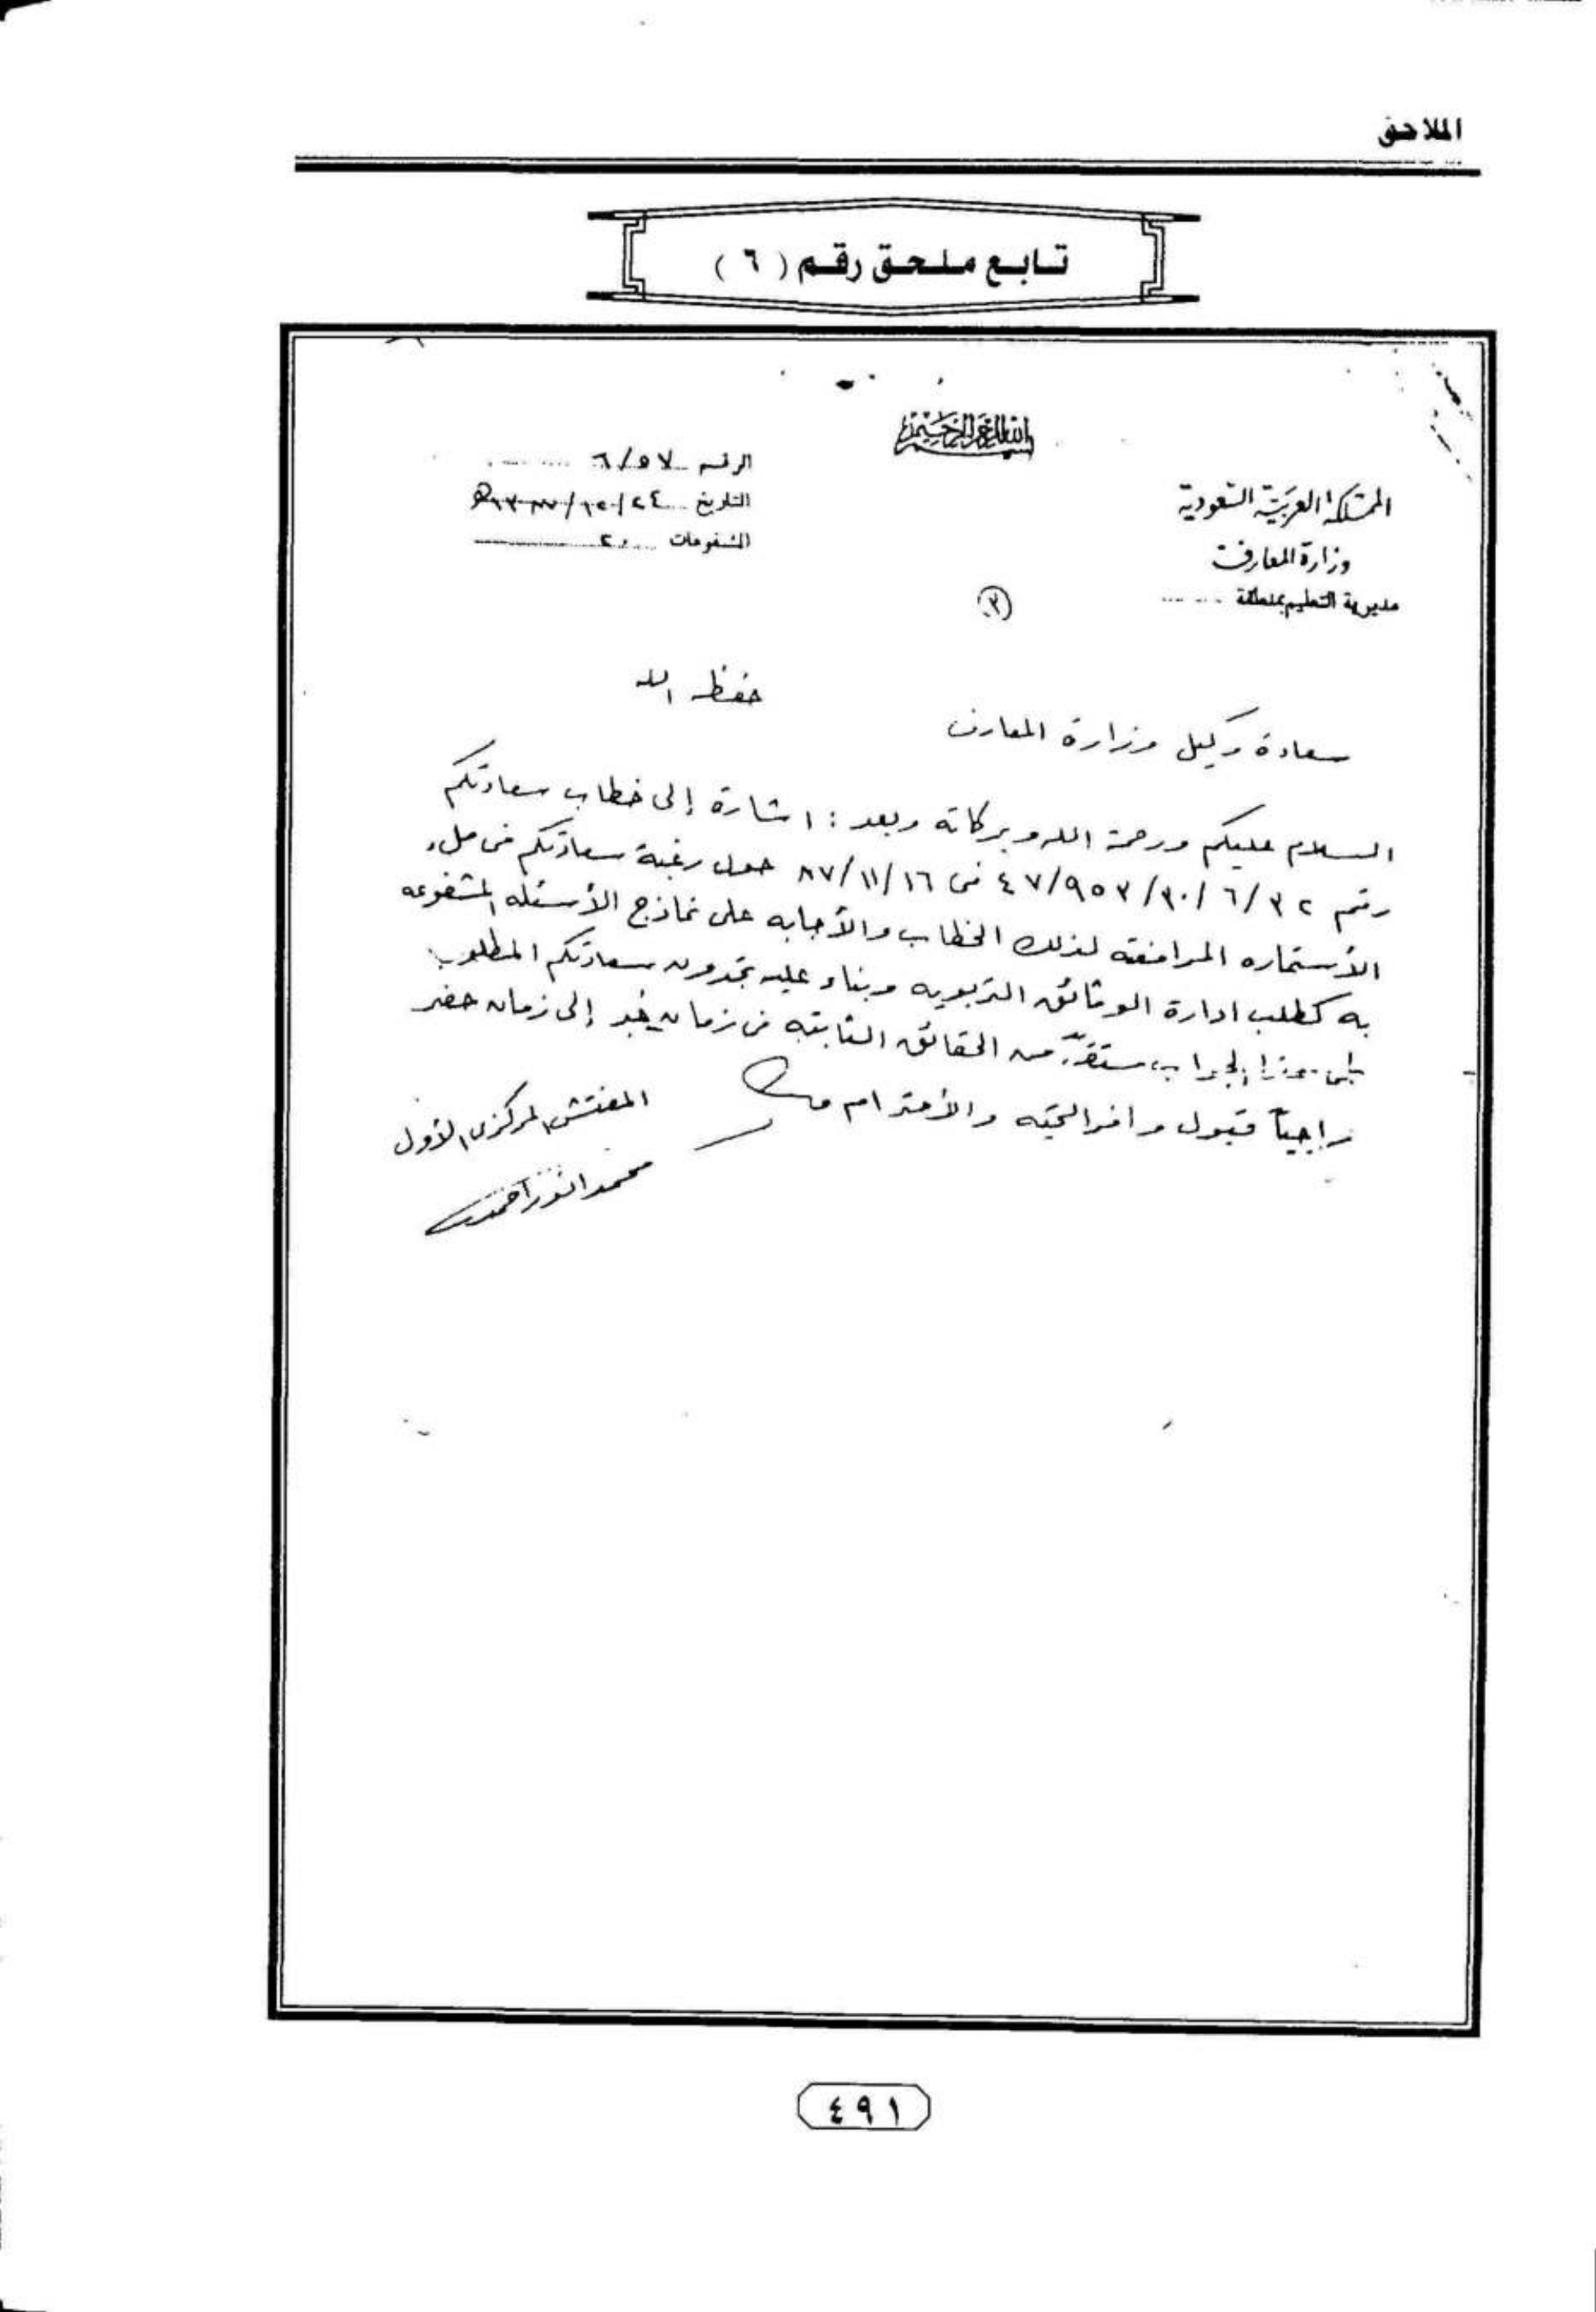 الملاحق
تابع ملحق رقم ( ٦ )
بسم الله الرحمن الرحيم
المملكة العربية السعودية
وزارة المعارف
مديرية التعليم بمنطقة
الرقم ٦/٥٧
التاريخ ٢٤/١٢/١٣٨٧ه
المشفوعات ٢٠
٣
سعادة وكيل وزارة المعارف حفظه الله
السلام عليكم ورحمة الله وبركاته وبعد : اشارة إلى خطاب سعادتكم
رقم ٣٢/٦/٣٠/٤٧/٩٥٣ في ٨٧/١١/١٦ حول رغبة سعادتكم في ملء
الأستماره المرافقه لذلك الخطاب والأجابه على نماذج الأسئله المشفوعه
به كطلب ادارة الوثائق التربويه وبناء عليه تجدون سعادتكم المطلوب
الجواب من الحقائق الثابته من زمان إلى زمان حضر
راجياً قبول وافر التحيه والأحترام
المفتش المركزي الأول
محمد انور احمد
٤٩١